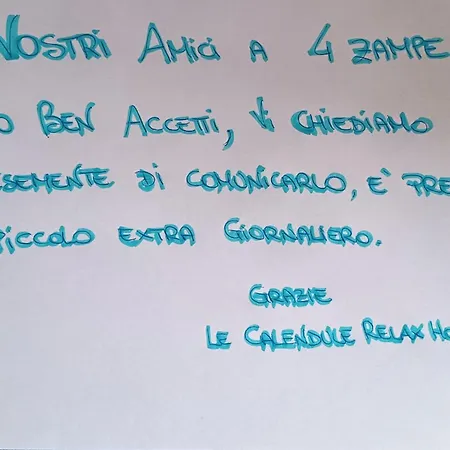 NOSTRI AMICI A 4 ZAMPE
O BEN ACCETTI, VI CHIEDIAMO
SEMENTE DI COMUNICARLO, E' PRE
PICCOLO EXTRA GIORNALIERO.
GRAZIE
LE CALENDULE RELAX HO